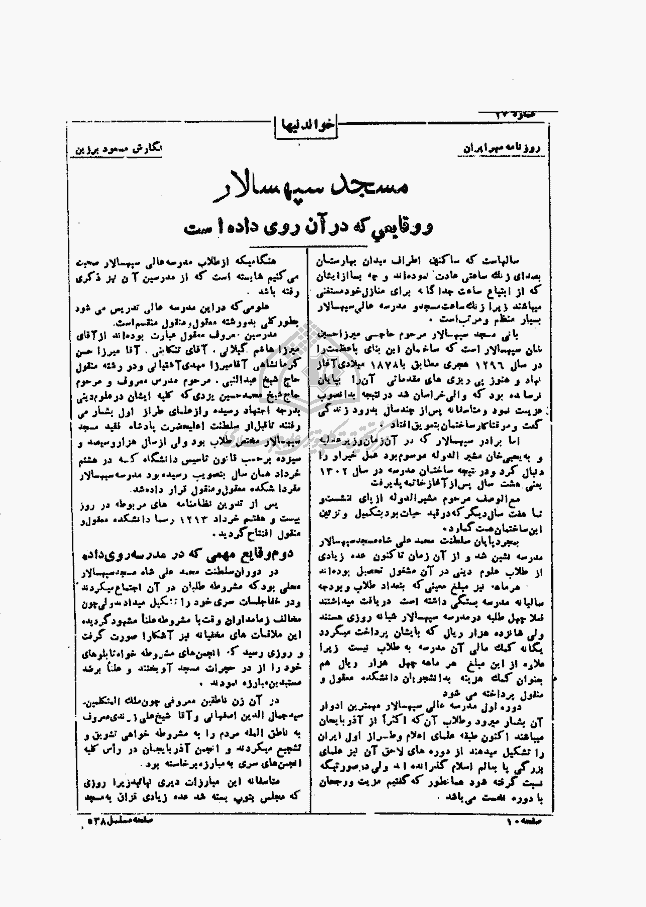 شماره ۲۷
خواندنیها
روزنامه مهر ایران
نگارش مسعود برزین
مسجد سپهسالار
ووقایعی که در آن روی داده است
سالهاست که ساکنین اطراف میدان بهارستان
بصدای زنگ ساعتی عادت نموده‌اند و چه بسا از ایشان
که از ابتیاع ساعت جداگانه برای منازل خود مستغنی
میباشند زیرا زنگ ساعت مسجد و مدرسه عالی سپهسالار
بسیار منظم و مرتب است .
بانی مسجد سپهسالار مرحوم حاجی میرزا حسین
خان سپهسالار است که ساختمان این بنای باعظمت را
در سال ۱۲۹۶ هجری مطابق با ۱۸۷۸ میلادی آغاز
نهاد و هنوز پی ریزی های مقدماتی آن را بپایان
نرسانده بود که والی خراسان شد در نتیجه بدانصوب
عزیمت نمود و متاسفانه پس از چند سال بدرود زندگی
گفت و مرقتا کار ساختمان بتعویق افتاد .
اما برادر سپهسالار که در آن زمان وزیر عدلیه
و به یحیی خان مشیر الدوله موسوم بود عمل خیر او را
دنبال کرد و در نتیجه ساختمان مدرسه در سال ۱۳۰۲
یعنی هشت سال پس از آغاز خاتمه پذیرفت
مع‌الوصف مرحوم مشیرالدوله از پای ننشست و
تا هفت سال دیگر که در قید حیات بود بتکمیل و تزئین
این ساختمان همت گمارد .
بمجرد پایان سلطنت محمد علی شاه مسجد سپهسالار
مدرسه نشین شد و از آن زمان تاکنون عده زیادی
از طلاب علوم دینی در آن مشغول تحصیل بوده‌اند
هر ماهه نیز مبلغ معینی که بتعداد طلاب و بودجه
سالیانه مدرسه بستگی داشته است دریافت میداشتند
فعلا چهل طلبه در مدرسه سپهسالار شبانه روزی هستند
ولی شانزده هزار ریال که بایشان پرداخت میگردد
یگانه کمک مالی آن مدرسه به طلاب نیست زیرا
علاوه از این مبلغ هر ماهه چهل هزار ریال هم
بعنوان کمک هزینه بدانشجویان دانشکده معقول و
منقول پرداخته می شود
دوره اول مدرسه عالی سپهسالار مهمترین ادوار
آن بشمار میرود و طلاب آن که اکثرا از آذربایجان
میباشند اکنون طبقه علمای اعلام و طراز اول ایران
را تشکیل میدهند از دوره های لاحق آن نیز علمای
بزرگی با عالم اسلام گذرانده اند ولی در صورتیکه
نسبت گرفته شود همانطور که گفتیم مزیت و رجحان
با دوره نخست می‌باشد .
هنگامیکه از طلاب مدرسه عالی سپهسالار صحبت
می‌کنیم شایسته است که از مدرسین آن نیز ذکری
رفته باشد .
علومی که در این مدرسه عالی تدریس می شود
بطور کلی بدو رشته معقول و منقول منقسم است.
مدرسین معروف معقول عبارت بوده‌اند از آقای
میرزا هاشم گیلانی ، آقای تنکابنی ، آقا میرزا حسن
کرمانشاهی آقا میرزا مهدی آشتیانی و در رشته منقول
حاج شیخ عبدالنبی ، مرحوم مدرس معروف و مرحوم
حاج شیخ محمد حسین یزدی که کلیه ایشان در علوم دینی
بدرجه اجتهاد رسیده و از علمای طراز اول بشمار می
رفتند تا قبل از سلطنت اعلیحضرت پادشاه فقید مسجد
سپهسالار مختص طلاب بود ولی از سال هزار و سیصد و
سیزده بر حسب قانون تاسیس دانشگاه که در هشتم
خرداد همان سال بتصویب رسیده بود مدرسه سپهسالار
مقر دانشکده معقول و منقول قرار داده شد.
پس از تدوین نظامنامه های مربوطه در روز
بیست و هفتم خرداد ۱۳۱۳ رسما دانشکده معقول و
منقول افتتاح گردید .
دوم وقایع مهمی که در مدرسه روی داده
در دوران سلطنت محمد علی شاه مسجد سپهسالار
محلی بود که مشروطه طلبان در آن اجتماع میکردند
و در خفا جلسات سری خود را تشکیل میدادند ولی چون
مخالف زمامداران وقت با مشروطه علنا مشهود گردیده
این ملاقات های مخفیانه نیز آشکارا صورت گرفت
و روزی رسید که انجمن‌های مشروطه خواه تابلوهای
خود را از در حجرات مسجد آویختند و علنا برضد
مستبدین مبارزه نمودند .
در آن زن ناطقین معروفی چون ملک المتکلمین،
سید جمال الدین اصفهانی و آقا شیخ علی زرندی معروف
به ناطق المله مردم را به مشروطه خواهی تشویق و
تشجیع میکردند و انجمن آذربایجان در رأس کلیه
انجمن‌های سری به مبارزه برخاسته بود .
متاسفانه این مبارزات دیری نپائید زیرا روزی
که مجلس بتوپ بسته شد عده زیادی قزاق به مسجد
صفحه ۱۰
صفحه مسلسل ۵۳۸